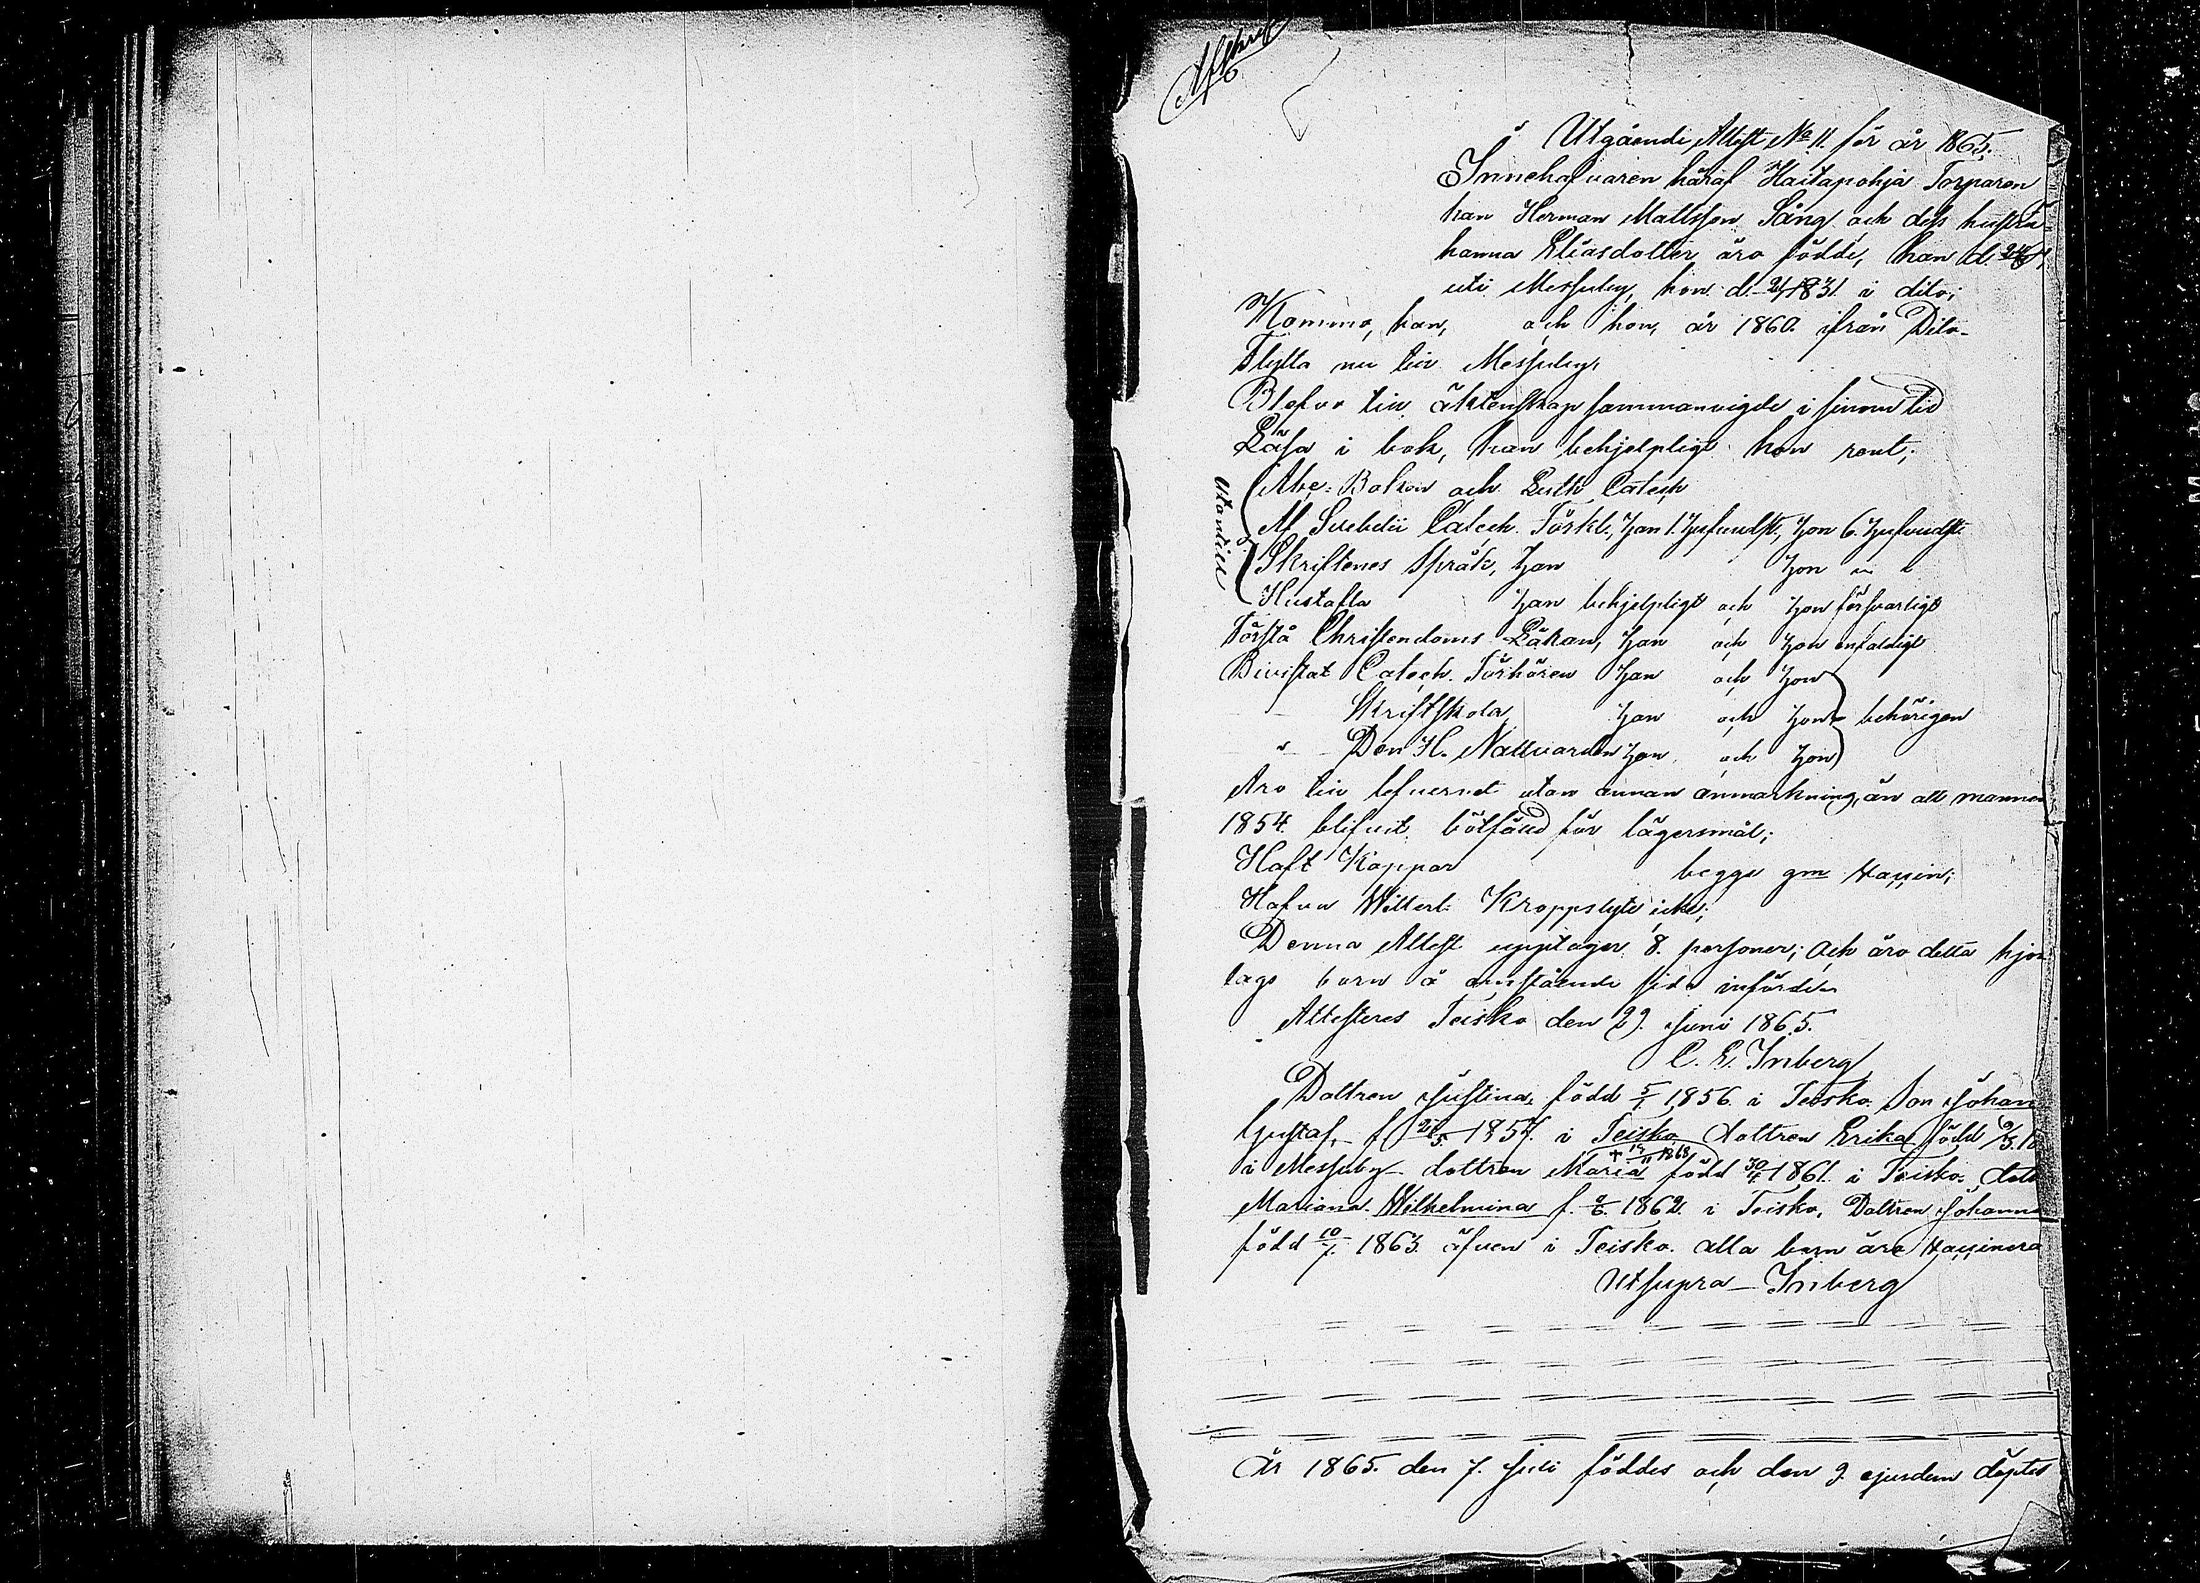 Afskrift
Utgående Attest No 11. för år 1865.
Innehafvaren häraf Haitapohja Torparen
han Herman Mattsson Sång och dess hustru
hanna Eliasdotter äro födde, han d.
uti Messuby, hon d. 2/1 1831. i dito;
Komme, han, och hon, år 1860. ifrån Dito.
Flytta nu till Messuby.
Blefvo till äktenskap sammanvigde i sinom tid
Läsa i bok, han behjelpligt hon rent;
utantill
Abc-Boken och Luth. Catech
M. Svebelii Catech. Förkl., han 1. hufvudst., hon 6. hufvudst.
Skriftenes Språk, han hon
Hustafla han behjelpligt och hon försvarligt
Förstå Christendoms Läran, han och hon enfaldigt
Bivistat Catech. Förhören han och hon
Skriftskola han och hon behörigen
" Den H. Nattvarden han och hon
Äro till lefvernet utan annan anmärkning, än att mannen
1854. blifvit bötfälld för lägersmål;
Haft Koppor begge gm Vaccin;
Hafva Witterl. Kroppslyte icke;
Denna Attest upptager 8. personer; och äro detta hjon-
lags barn å omstående sida införde.
Attesteres Teisko den 29. Juni 1865.
C. E. Inberg
Dottren Justina, född 5/1 1856. i Teisko. Son Johan
Gustaf, f 1857. i Teisko, dottren Erika född 9/3. 18
† 17/11 1868
i Messuby. dottren Maria född 30/4 1861. i Teisko. dott
Mariana Wilhelmina f. 2/6. 1862. i Teisko, Dottren Johanna
född 10/7. 1863. äfven i Teisko. alla barn äro Vaccinera
Utsupra Inberg
År 1865. den 7. Juli föddes och den 9. ejusdem döptes